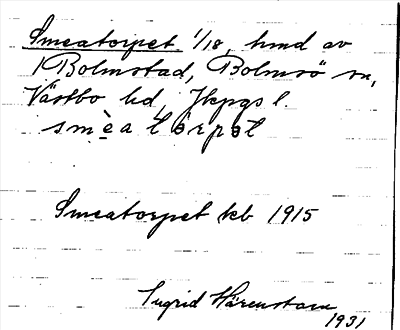 Smeatorpet 1/18, hmd av
Bolmstad, Bolmsö sn,
Västbo hd, Jkpgs l.
smèa tòrpet
Smeatorpet kb 1915
Ingrid Härenstam
1931